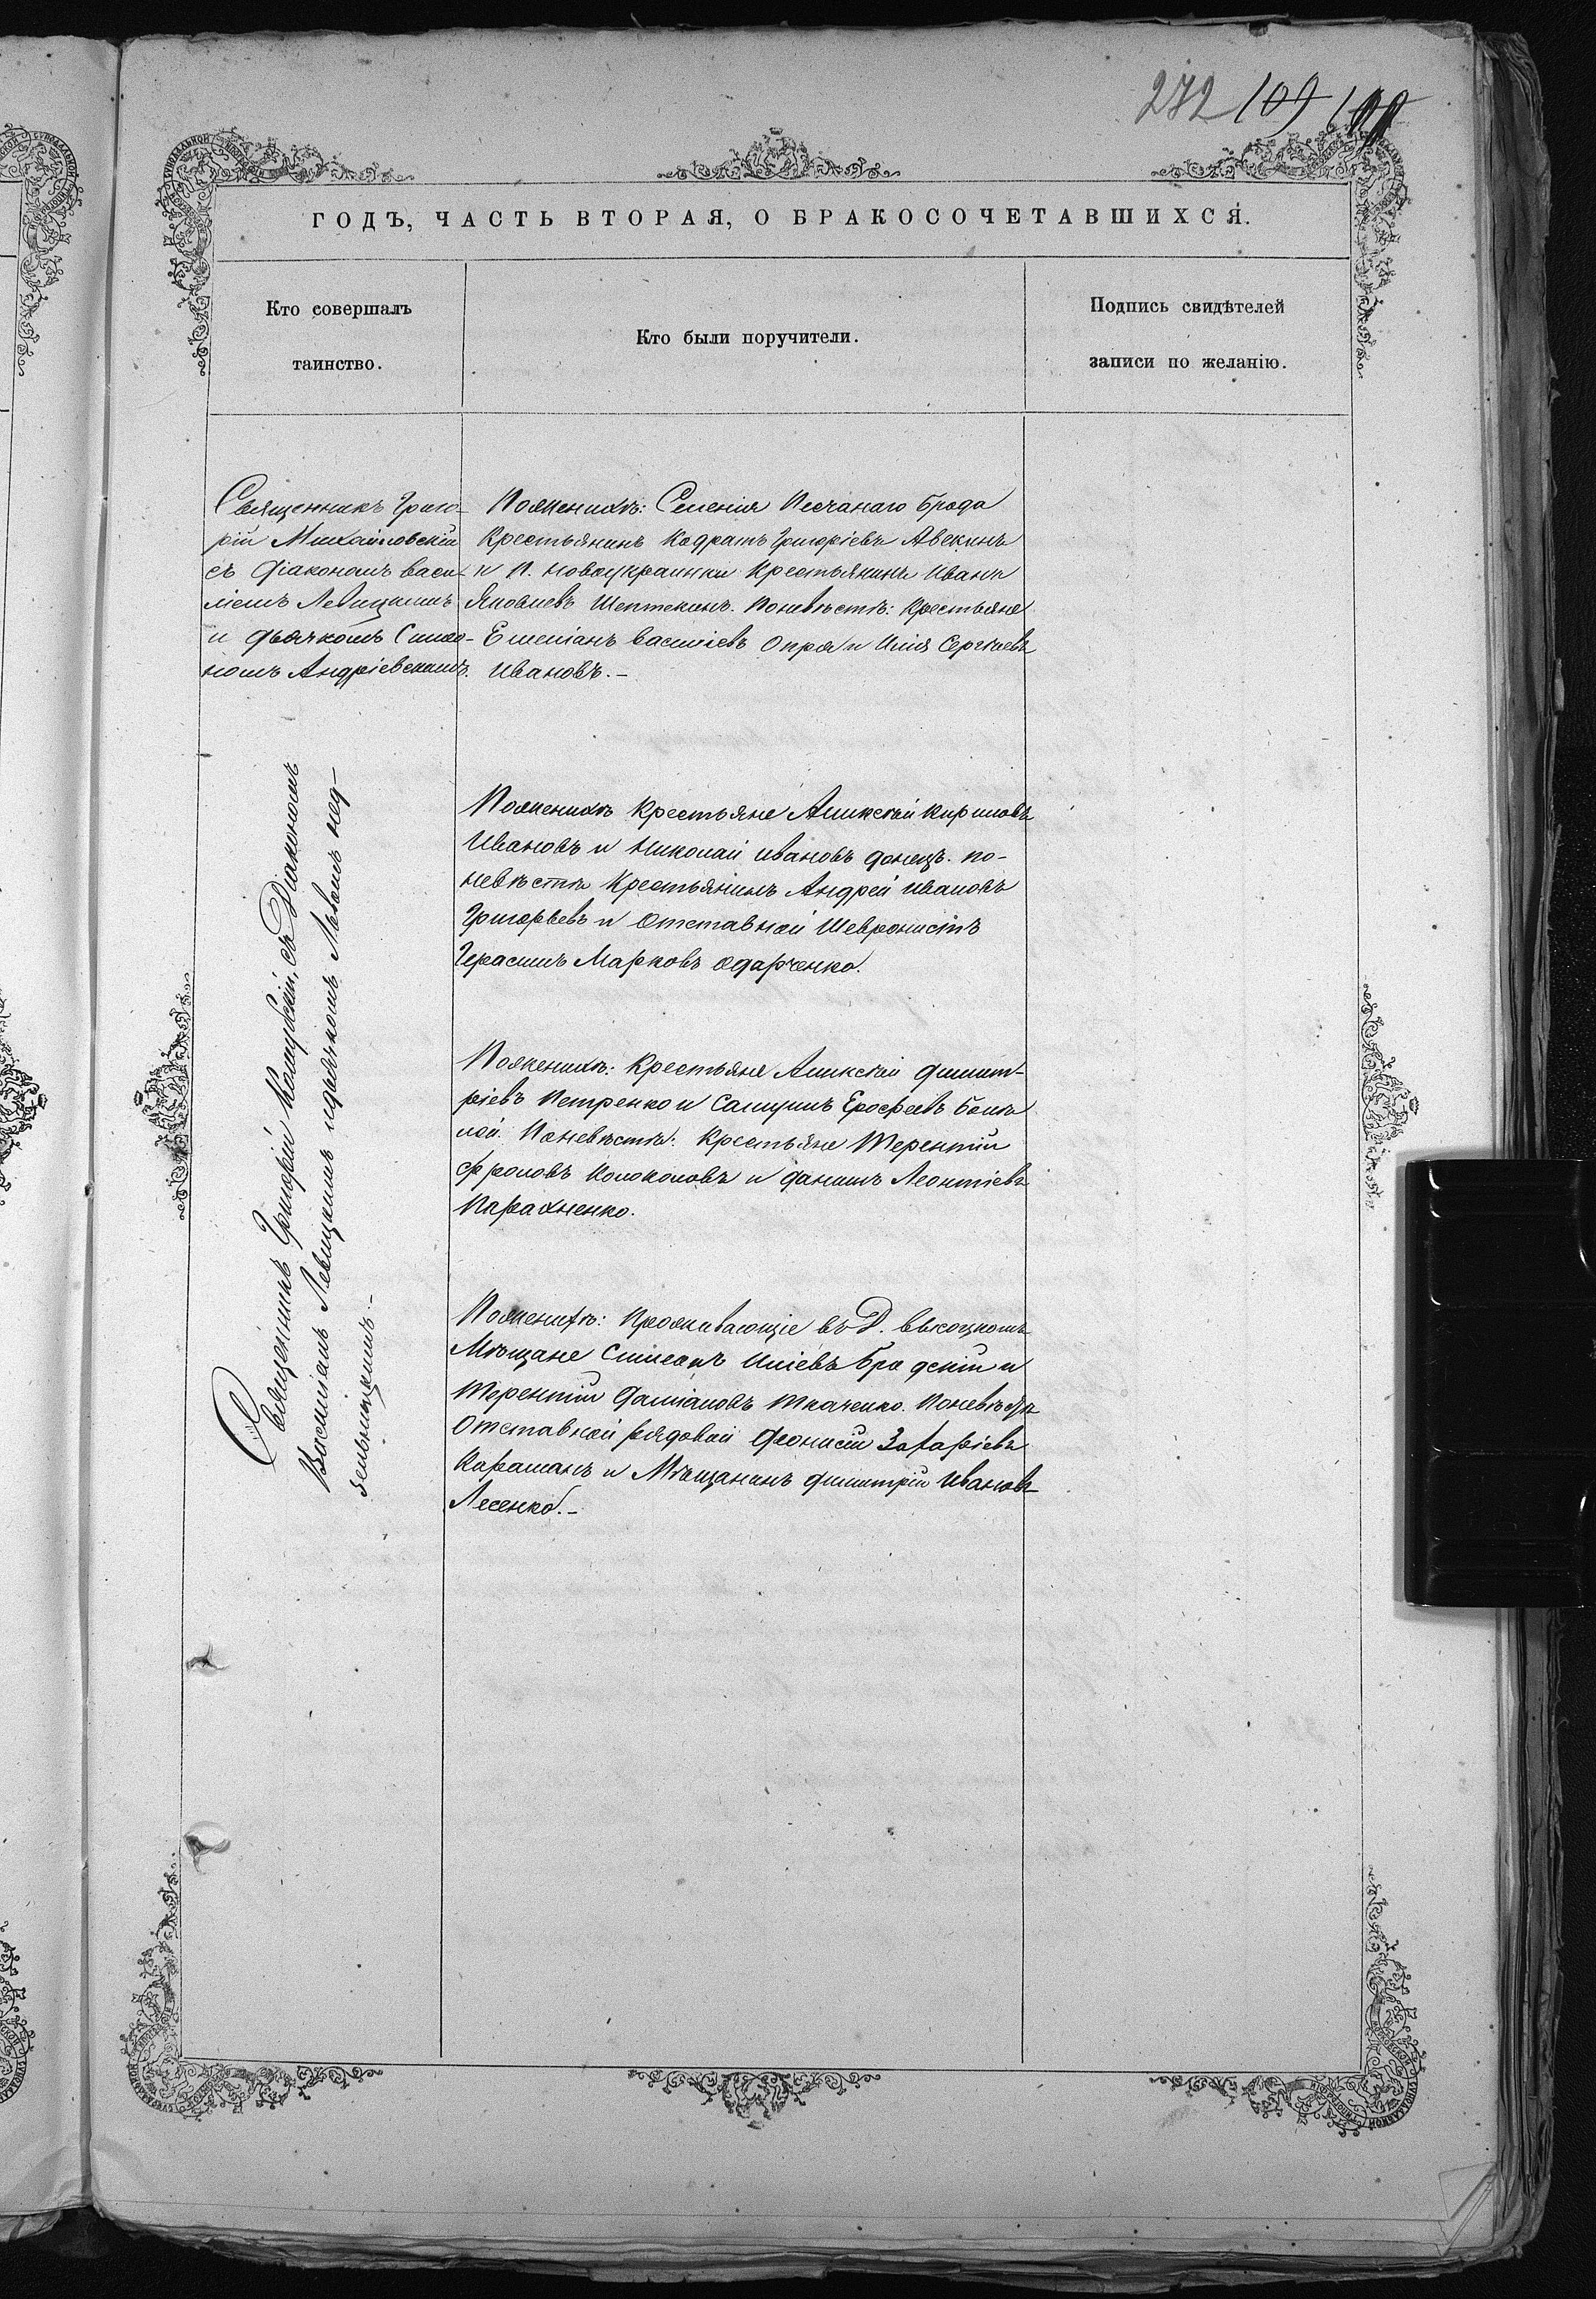 272 109
ГОДЪ, ЧАСТЬ ВТОРАЯ, О БРАКОСОЧЕТАВШИХСЯ.
Кто совершалъ
таинство.
Кто были поручители.
Подпись свидѣтелей
записи по желанію.
Священникъ Григо-
рій Михайловскій
съ Діакономъ Васи-
ліемъ Левицкимъ
и дьячкомъ Симео-
номъ Андріевскимъ.
Пожениху: Селенія Песчанаго Брода
Крестьянинъ Кодратъ Григоріевъ Авекинъ
и П. Новоукраинки Крестьянинъ Иванъ
Яковлевъ Шептекинъ. Поневѣстѣ: Крестьяне
Емеліанъ Василіевъ Опря и Илія Сергѣевъ
Ивановъ.-
Священникъ Григорій Колцуескій, съ Діакономъ
Василіемъ Левицкимъ и дьячкомъ нед-
зельницкимъ.-
Пожениху Крестьяне Алексѣй Кириловъ
Ивановъ и Николай Ивановъ Донецъ. По-
невѣстѣ Крестьянинъ Андрей Ивановъ
Григорьевъ и Отставной Шевронистъ
Герасимъ Марковъ Одарченко.
Пожениху: Крестьяне Алексѣй Димит-
ріевъ Петренко и Самуилъ Ерофеевъ
лой. Поневѣстѣ: Крестьяне Терентій
Фроловъ Колоколовъ и Даніилъ Леонтіевъ
Парахненко.
Пожениху: Проживающіе въ Д. Высоцкомъ
Мѣщане Симеонъ Иліевъ Бродскій и
Терентій Даміановъ Ткаченко. Поневѣстѣ
Отставной рядовой Діонисій Захаріевъ
Караманъ и Мѣщанинъ Димитрій Ивановъ
Лесенко.-